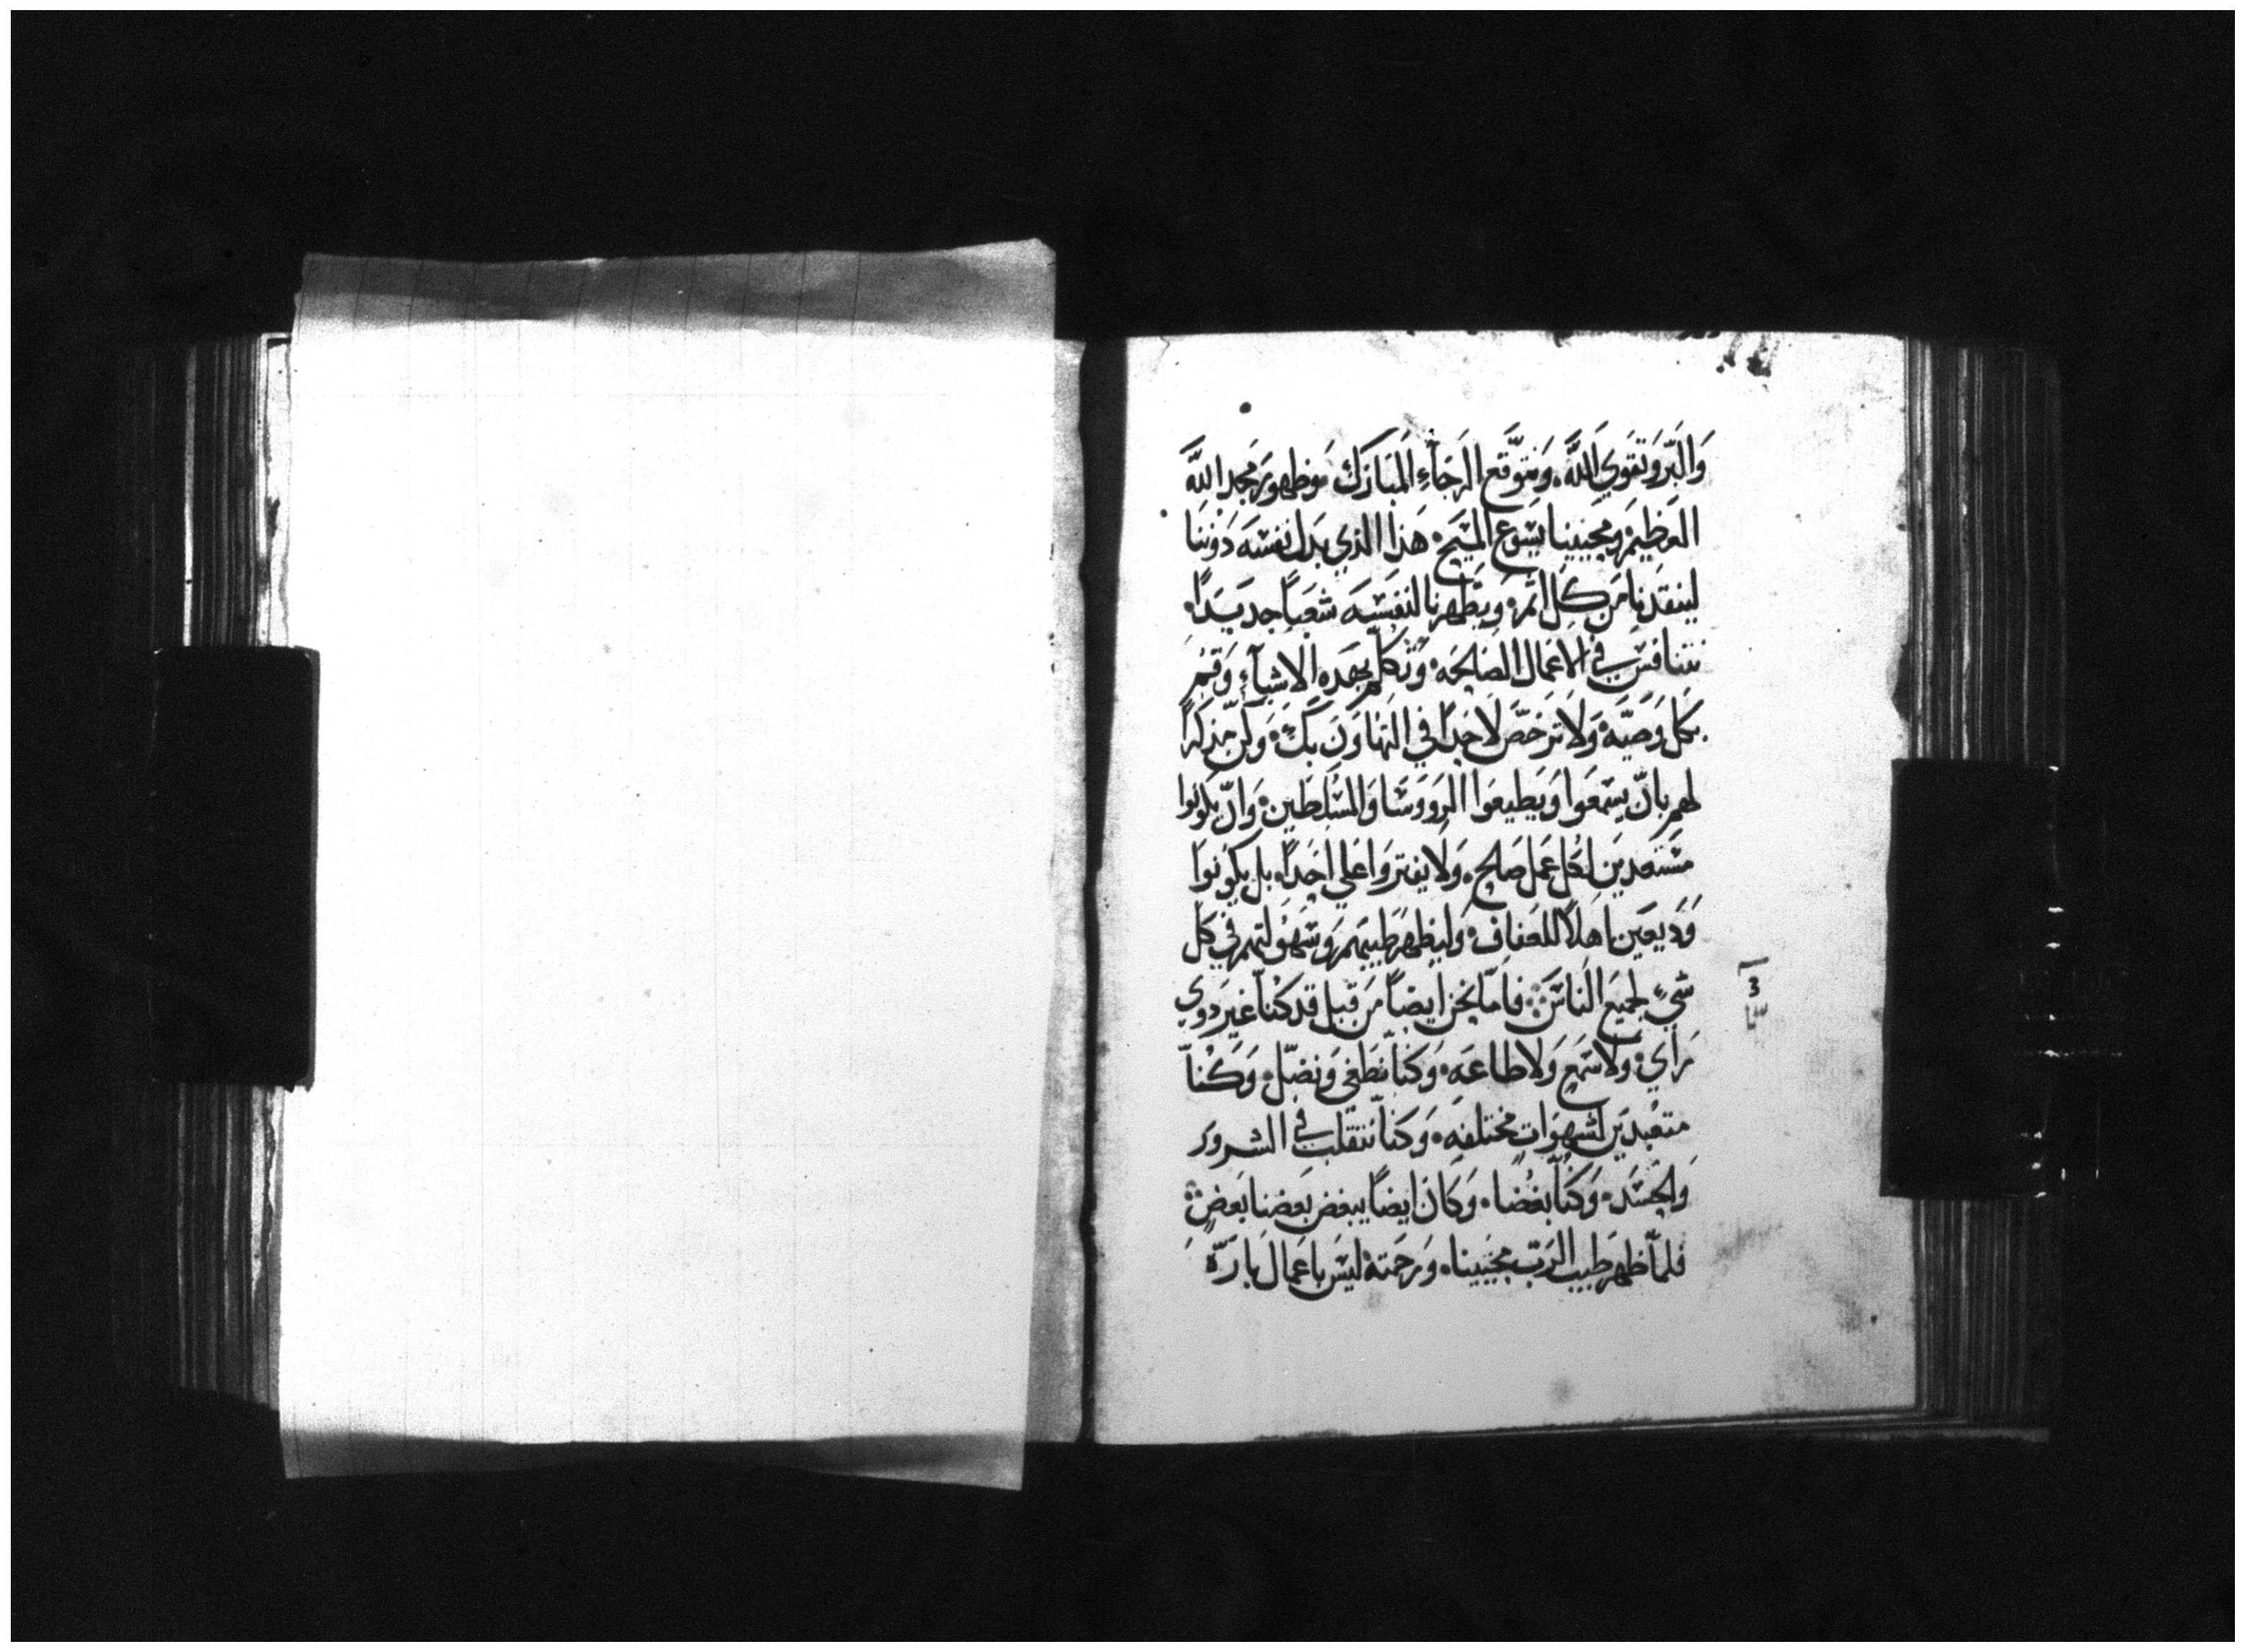 وَالبّر وَتقوَي اللَّه. وَنتوَقع الرَجَآءِ المبَارَك وَظهورَ مجد اللَّه
العَظيمَ وَمحيينا يسَوع المسَيح. هَذا الذي بدَل نفسَه دَوننا
لينقدنا مَن كل اثمَ. وَيَطهرنا لنفسَه شعَباً جديدًا.
نتنافسَ في الاعمَال الصَالحَه. وَتكلم بهَده الاشيآءِ وَقمَ
بكل وَصَيّه. وَلا ترَخصَ لاحَداً في التهَاوَن بكَ. وَكن مذكرًا
لهم بانّ يسَمعَوا وَيَطيعَوا الروَوسَا وَالمسَلطَين. وَانّ يكوَنوا
مسَتعدينَ لكل عَمل صَالح. وَلا يفتروَا عَلي احَداً. بل يكوَنوا
وَدَيعَين اهلاً للعَفاف. وَليظهرَ طَيبهمَ وَسَهوَلتهمَ في كل
شيءٍ لجميعَ الناسَ فامّا نحن ايضاً مَن قبل قد كنّا غيرَ دَوي
رَاي. ولا سَمع وَلا طاعَه. وَكنّا نطَغي وَنضّل. وَكنّا
متعَبدَين لشهوَات مختلفه. وَكنّا نتقلب في الشرور
وَالحسَد. وَكنّا بغضا. وَكانَ ايضاً يبغض بَعضنا بَعض
فلمّا ظهرَ طَيب الرَبّ محيينا. وَرَحمَته ليسَ باعَمال بَارَّة
3